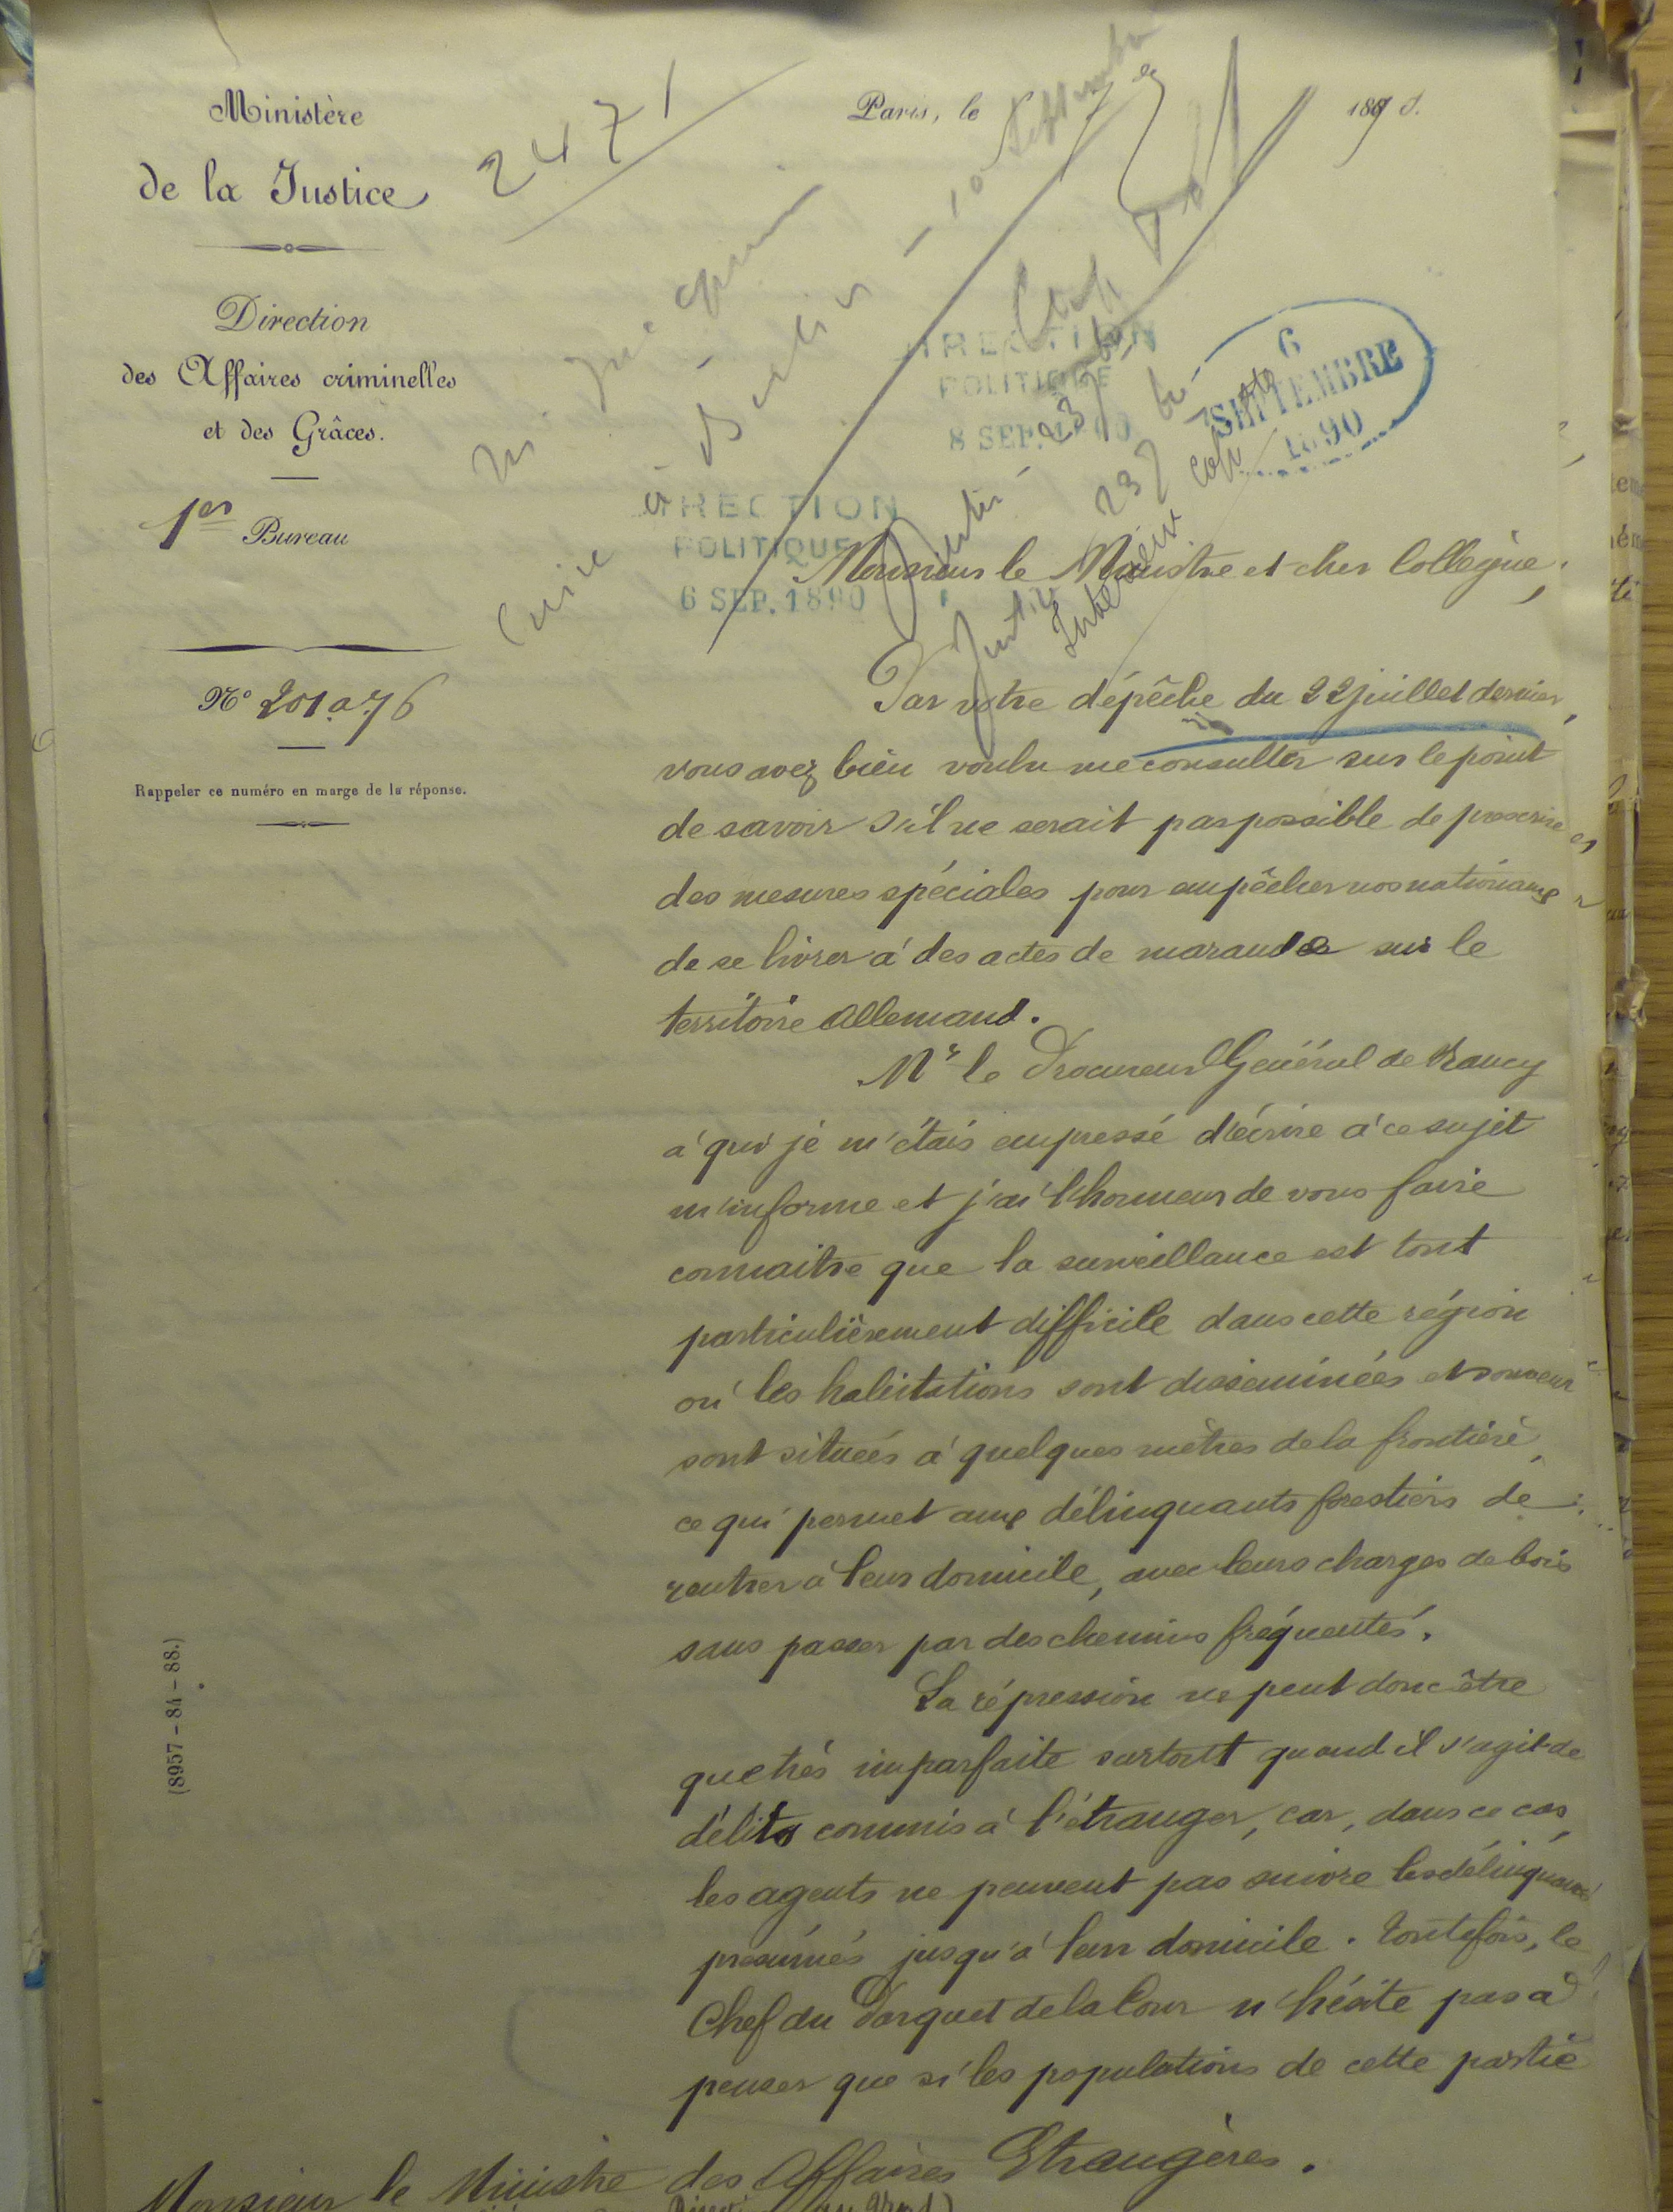 Ministère
de la Justice
Direction
des Affaires criminelles
et des Grâces.
1er Bureau
N° 201 a 76
Rappeler ce numéro en marge de la réponse.
(8957-84-88.)
2471
Paris, le 189
DIRECTION
POLITIQUE
8 SEP. 1890
6
SEPTEMBRE
1890
RECTION
POLITIQUE
6 SEP. 1890
Monsieur le Ministre et cher Collègue,
Par votre dépêche du 22 juillet dernier,
vous avez bien voulu me consulter sur le point
de savoir s'il ne serait pas possible de prescrire
des mesures spéciales pour empêcher nos nationaux
de se livrer à des actes de maraude sur le
territoire allemand.
Mr le Procureur Général de Nancy
à qui je m'étais empressé d'écrire à ce sujet
m'informe et j'ai l'honneur de vous faire
connaitre que la surveillance est tout
particulièrement difficile dans cette région
où les habitations sont disséminées et souvent
sont situées à quelques mètres de la frontière,
ce qui permet aux délinquants forestiers de
rentrer à leur domicile, avec leurs charges de bois
sans passer par des chemins fréquentés.
La répression ne peut donc être
que très imparfaite surtout quand il s'agit de
délits commis à l'étranger, car, dans ce cas,
les agents ne peuvent pas suivre les délinquants
présumés jusqu'à leur domicile. Toutefois, le
Chef du Parquet de la Cour n'hésite pas à
penser que si les populations de cette partie
Monsieur le Ministre des Affaires Etrangères.